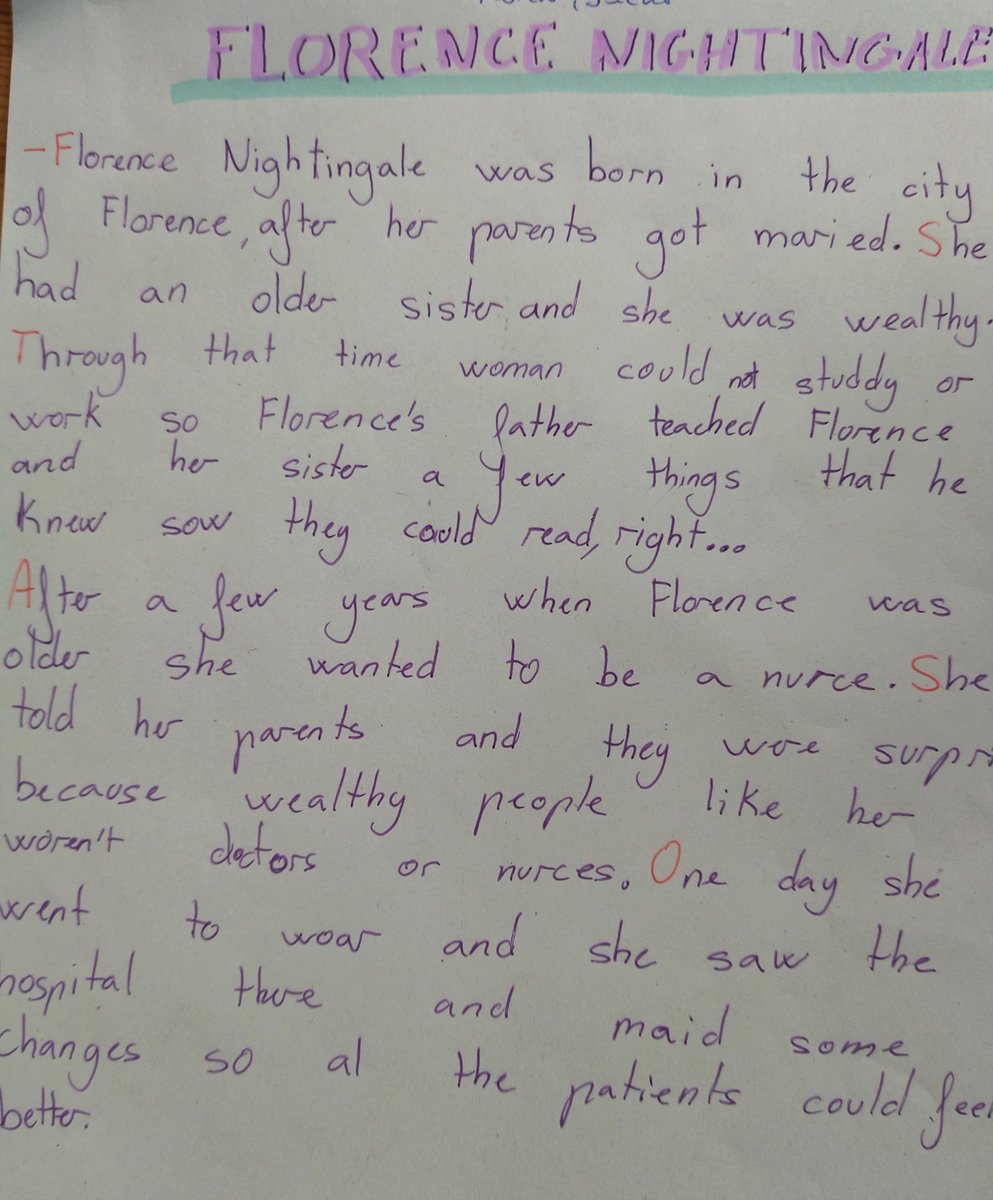 FLORENCE NIGHTINGALE
-Florence Nightingale was born in the city
of Florence, after her parents got maried. She
had an older sister and she was wealthy.
Through that time woman could not studdy or
work so Florence's father teached Florence
and her sister a few things that he
knew sow they could read, right...
After a few years when Florence was
older she wanted to be a nurce. She
told her parents and they wore surpri
because wealthy people like her
woren't doctors or nurces. One day she
went to woar and she saw the
hospital there and maid some
changes so al the patients could feel
better.